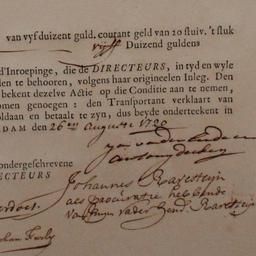 van vyf duizent guld. courant geld van 20 stuiv. 't stuk
vijff Duizend guldens
d'Inroepinge, die de DIRECTEURS, in tyd en wyle
den te behooren, volgens haar origineelen Inleg. Den
bekent dezelve Actie op die Conditie aan te nemen,
omen genoegen: den Transportant verklaart van
oldaan en betaalt te zyn, dus beyde onderteekent in
DAM den 26en augustie 1720
ondergeschrevene
ECTEURS
Johannes Raresteijn
als procuratie hebbende
van mijn vader Hend. Raresteijn